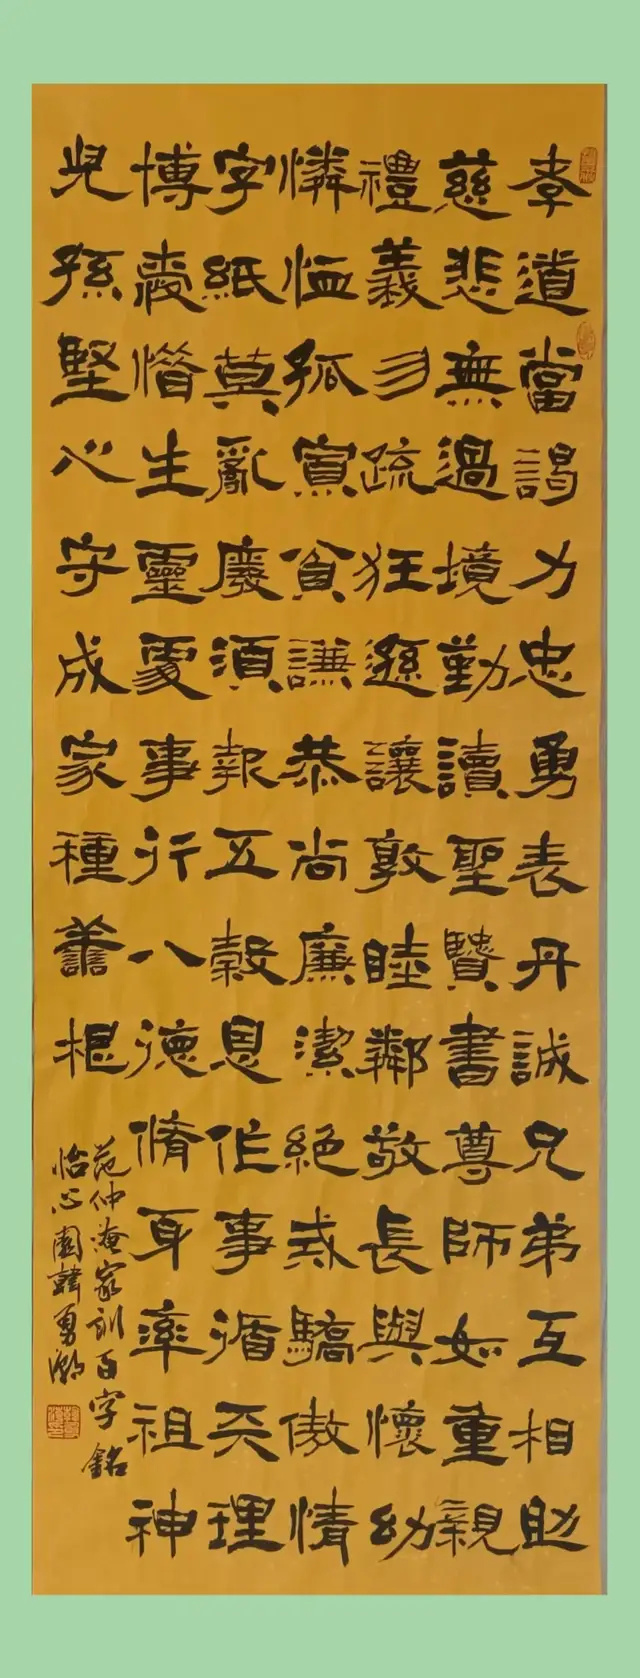 孝道當謁力忠勇表丹誠兄弟互相助
慈悲無過境勤讀聖賢書尊師如重親
禮義勿疏狂遜讓敦睦鄰敬長與懷幼
憐恤孤寡貧謙恭尚廉潔絕戒驕傲情
字紙莫亂廢須報五穀恩作事循天理
博愛惜生靈處事行八德脩身率祖神
兒孫堅心守成家種善根
范仲淹家訓百字銘
怡心園韓勇